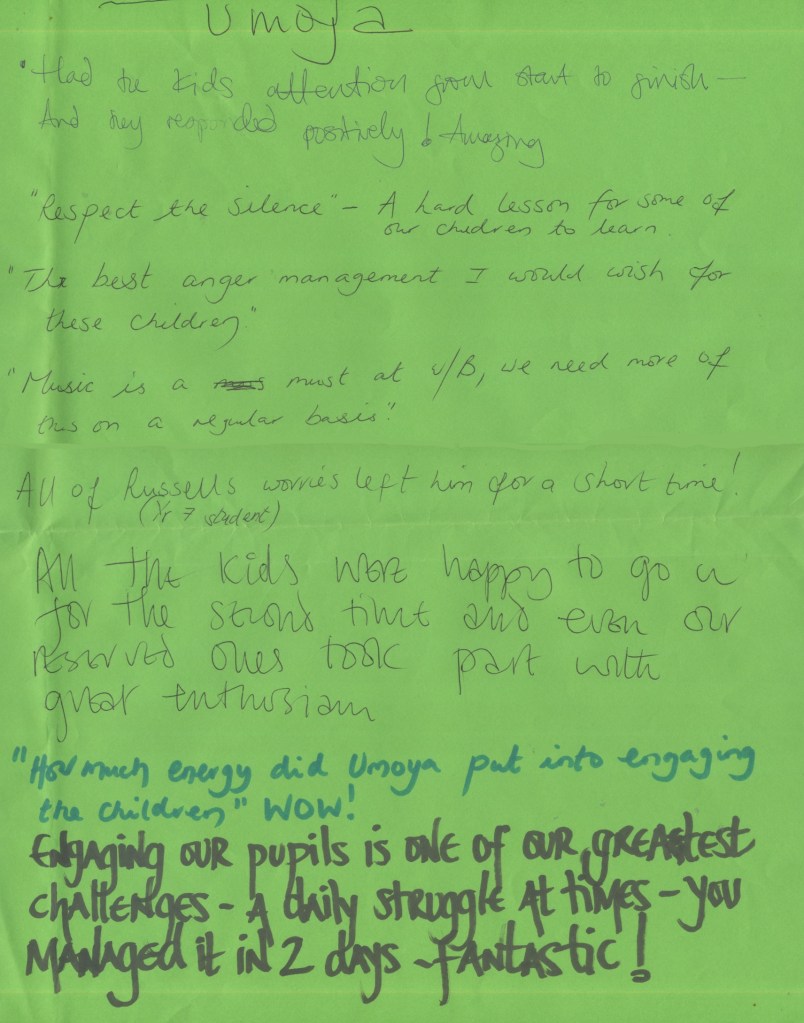 Umoya
"Had the kids attention from start to finish –
And they responded positively! Amazing
"Respect the silence" – A hard lesson for some of
our children to learn.
"The best anger management I would wish for
these children"
"Music is a must at v/B, we need more of
this on a regular basis".
All of Russells worries left him for a short time!
(Yr 7 student)
All the kids were happy to go in
for the second time and even our
reserved ones took part with
great enthusiasm
"How much energy did Umoya put into engaging
the children" WOW!
ENGAGING OUR pupils is ONE of OUR GREATEST
CHALLENGES – A daily struggle At times – you
MANAGED it in 2 days – FANTASTIC!